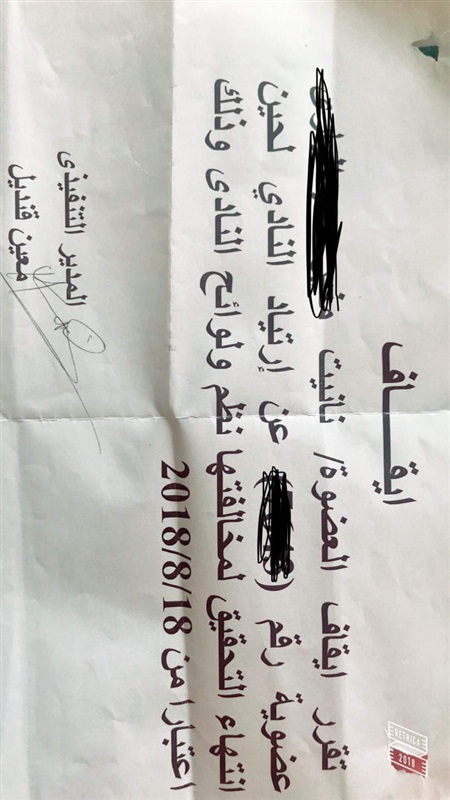 ايقـــاف
تقرر ايقاف العضوة/ نانيت
عضوية رقم ( ) عن إرتياد النادي لحين
انتهاء التحقيق لمخالفتها نظم ولوائح النادى وذلك
اعتبارا من 2018/8/18
المدير التنفيذى
معين قنديل
RETRICA
2018